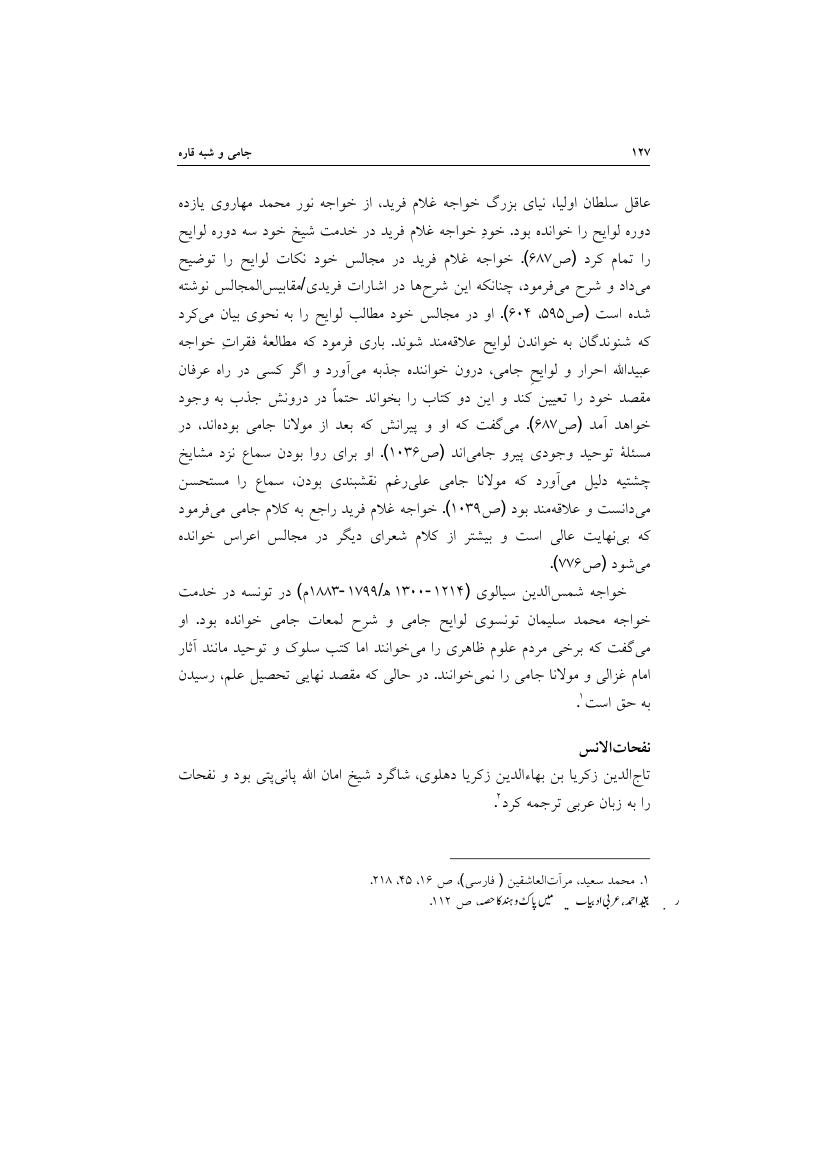 ۱۲۷ جامی و شبه قاره
عاقل سلطان اولیا، نیای بزرگ خواجه غلام فرید، از خواجه نور محمد مهاروی یازده
دوره لوایح را خوانده بود. خودِ خواجه غلام فرید در خدمت شیخ خود سه دوره لوایح
را تمام کرد (ص۶۸۷). خواجه غلام فرید در مجالس خود نکات لوایح را توضیح
می‌داد و شرح می‌فرمود، چنانکه این شرح‌ها در اشارات فریدی/مقابیس‌المجالس نوشته
شده است (ص۵۹۵، ۶۰۴). او در مجالس خود مطالب لوایح را به نحوی بیان می‌کرد
که شنوندگان به خواندن لوایح علاقه‌مند شوند. باری فرمود که مطالعهٔ فقراتِ خواجه
عبیدالله احرار و لوایحِ جامی، درون خواننده جذبه می‌آورد و اگر کسی در راه عرفان
مقصد خود را تعیین کند و این دو کتاب را بخواند حتماً در درونش جذب به وجود
خواهد آمد (ص۶۸۷). می‌گفت که او و پیرانش که بعد از مولانا جامی بوده‌اند، در
مسئلهٔ توحید وجودی پیرو جامی‌اند (ص۱۰۳۶). او برای روا بودن سماع نزد مشایخ
چشتیه دلیل می‌آورد که مولانا جامی علی‌رغم نقشبندی بودن، سماع را مستحسن
می‌دانست و علاقه‌مند بود (ص۱۰۳۹). خواجه غلام فرید راجع به کلام جامی می‌فرمود
که بی‌نهایت عالی است و بیشتر از کلام شعرای دیگر در مجالس اعراس خوانده
می‌شود (ص۷۷۶).
خواجه شمس‌الدین سیالوی (۱۲۱۴-۱۳۰۰ ه/۱۷۹۹-۱۸۸۳م) در تونسه در خدمت
خواجه محمد سلیمان تونسوی لوایح جامی و شرح لمعات جامی خوانده بود. او
می‌گفت که برخی مردم علوم ظاهری را می‌خوانند اما کتب سلوک و توحید مانند آثار
امام غزالی و مولانا جامی را نمی‌خوانند. در حالی که مقصد نهایی تحصیل علم، رسیدن
به حق است۱.
نفحات‌الانس
تاج‌الدین زکریا بن بهاءالدین زکریا دهلوی، شاگرد شیخ امان الله پانی‌پتی بود و نفحات
را به زبان عربی ترجمه کرد۲.
۱. محمد سعید، مرآت‌العاشقین ( فارسی)، ص ۱۶، ۴۵، ۲۱۸.
احمد، عربی ادبیات میں پاک و ہند کا حصہ، ص ۱۱۲.